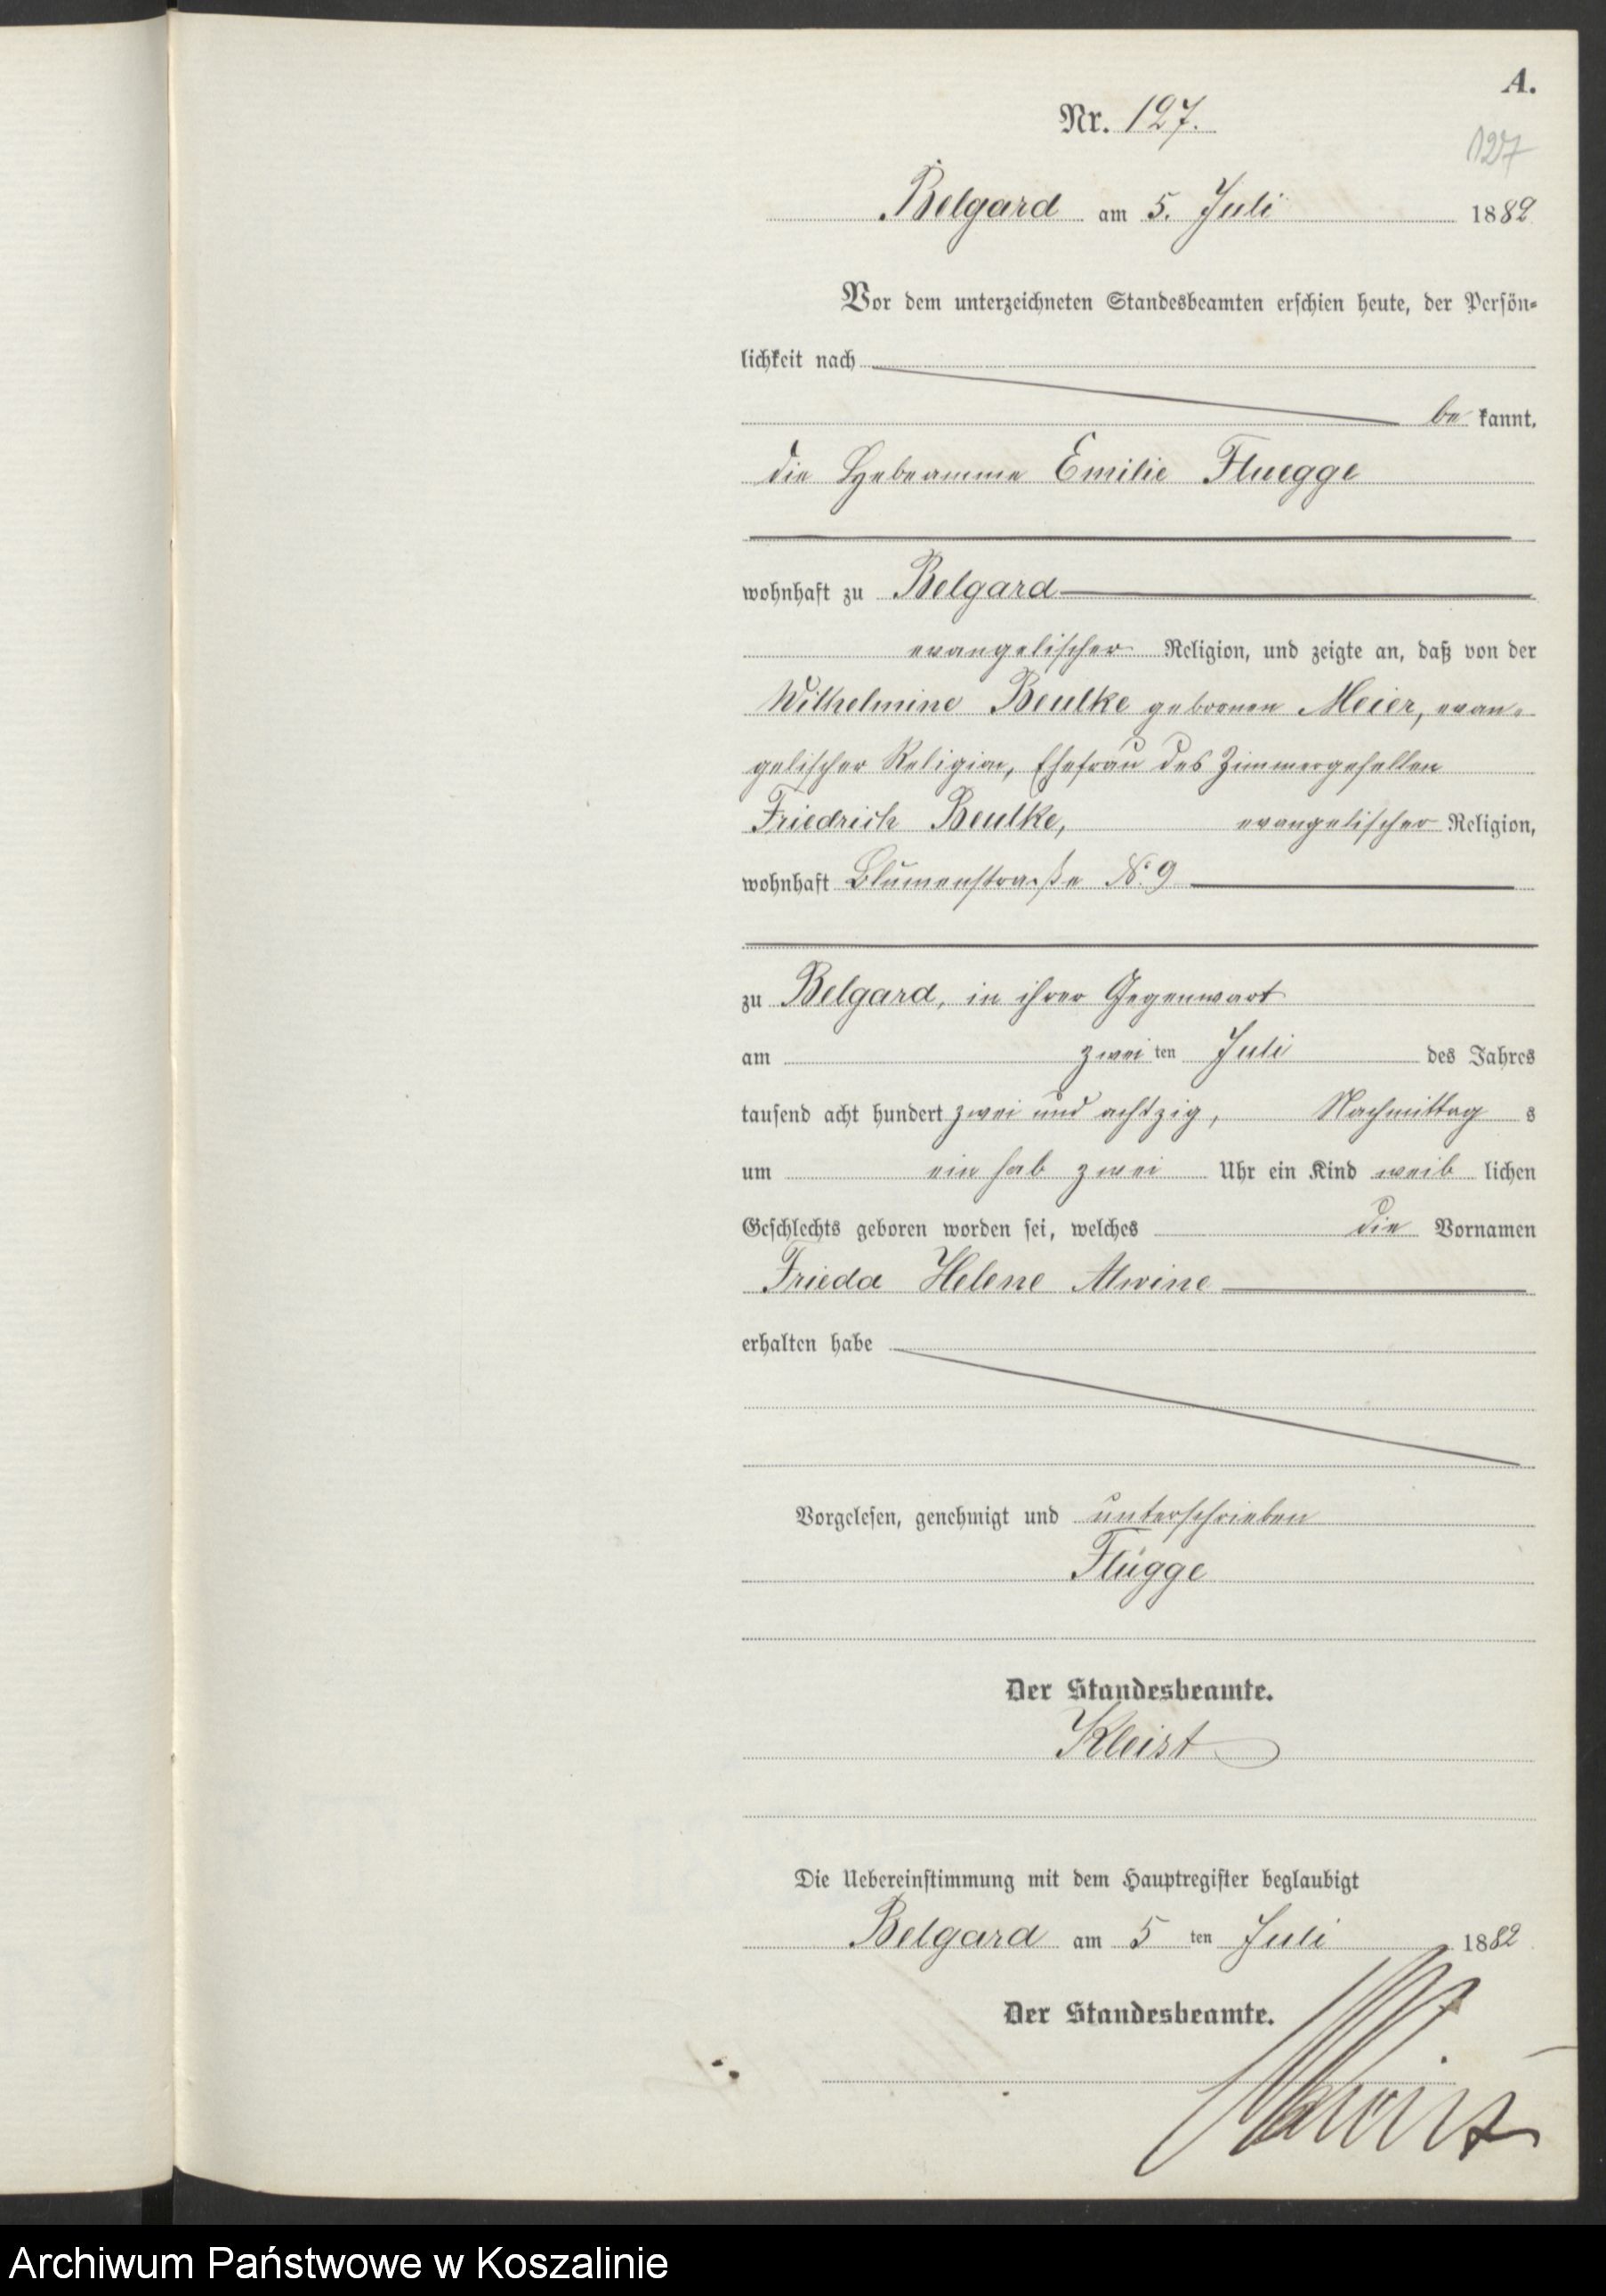 A.
Nr. 127.
127
Belgard am 5. Juli 1882
Vor dem unterzeichneten Standesbeamten erschien heute, der Persön-
lichkeit nach
be kannt,
die Hebeamme Emilie Fluegge
wohnhaft zu Belgard
evangelischer Religion, und zeigte an, daß von der
Wilhelmine Beulke geborenen Meier, evan-
gelischer Religion, Ehefrau des Zimmergesellen
Friedrich Beulke, evangelischer Religion,
wohnhaft Blumenstraße No 9
zu Belgard, in ihrer Gegenwart
am zwei ten Juli des Jahres
tausend acht hundert zwei und achtzig, Nachmittag s
um ein hab zwei Uhr ein Kind weib lichen
Geschlechts geboren worden sei, welches die Vornamen
Frieda Helene Alwine
erhalten habe
Vorgelesen, genehmigt und unterschrieben
Flügge
Der Standesbeamte.
Kleist
Die Uebereinstimmung mit dem Hauptregister beglaubigt
Belgard am 5 ten Juli 1882
Der Standesbeamte.
Kleist
Archiwum Państwowe w Koszalinie